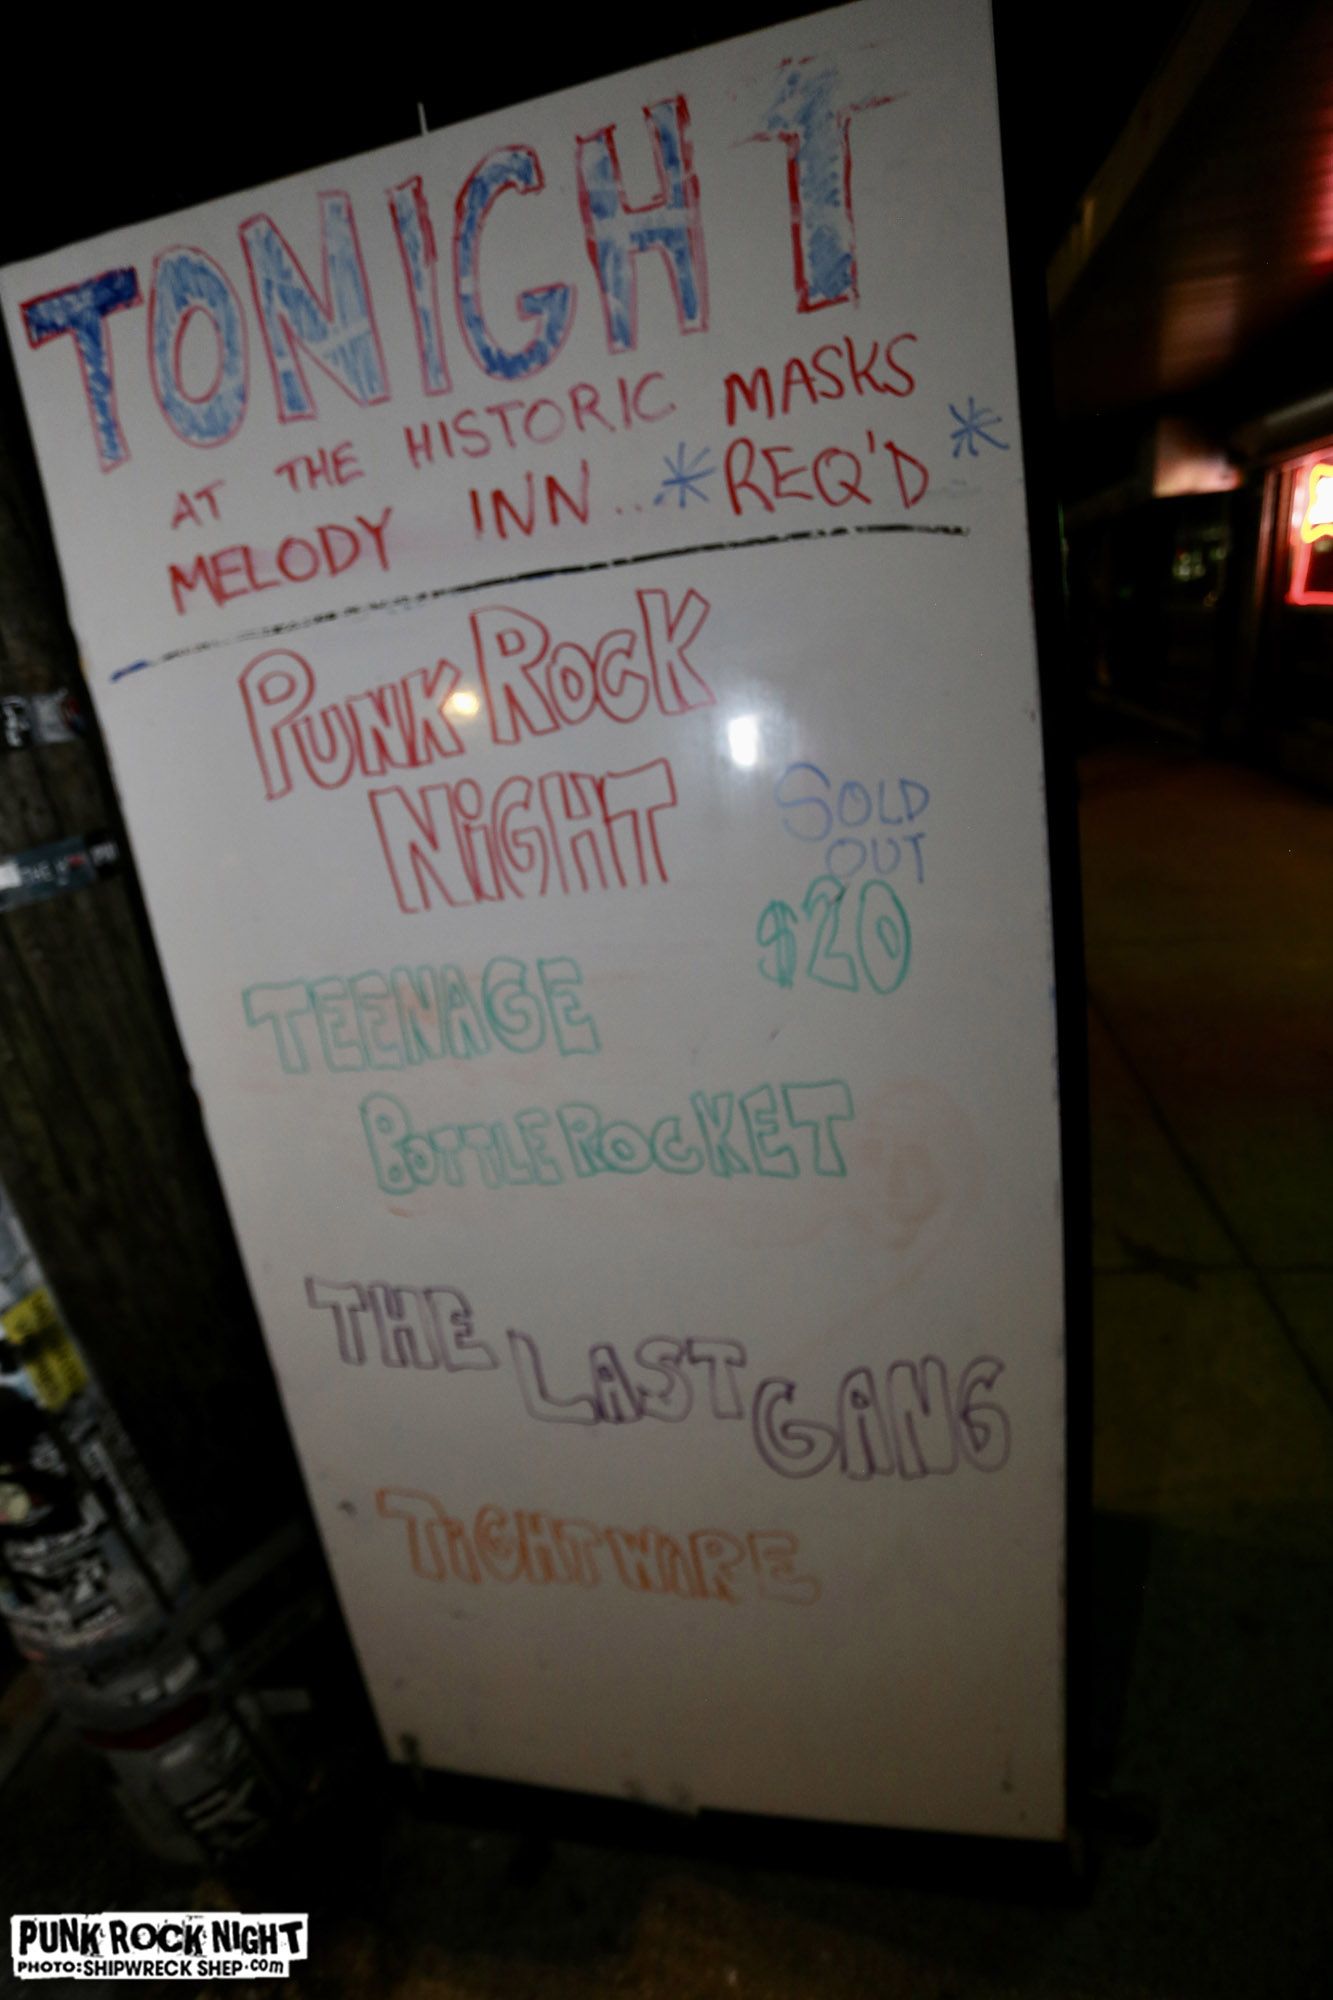 TONIGHT
AT THE HISTORIC MASKS
MELODY INN.. *REQ'D*
PUNK ROCK
NIGHT
SOLD
OUT
$20
TEENAGE
BOTTLEROCKET
THE LAST GANG
TIGHTWIRE
PUNK ROCK NIGHT
PHOTO:SHIPWRECK SHEP.COM